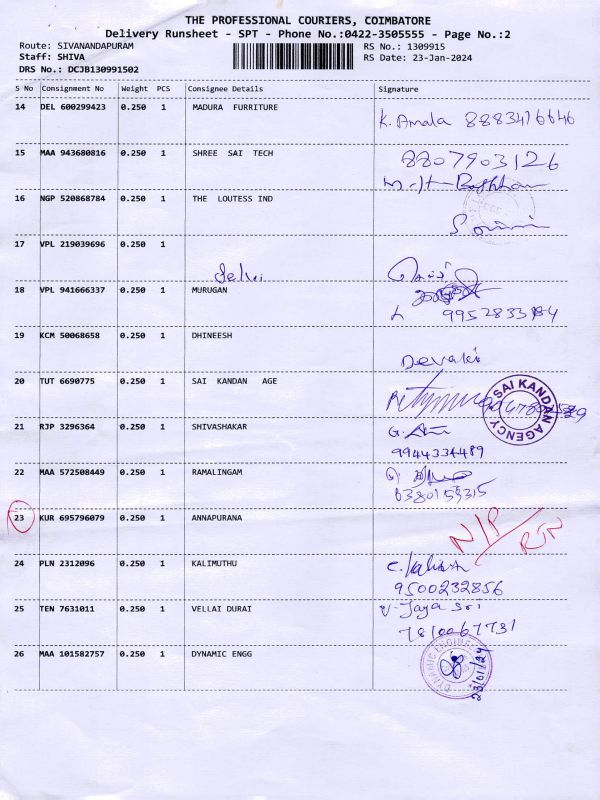 THE PROFESSIONAL COURIERS, COIMBATORE
Delivery Runsheet - SPT - Phone No.:0422-3505555 - Page No.:2
Route: SIVANANDAPURAM RS No.: 1309915
Staff: SHIVA RS Date: 23-Jan-2024
DRS No.: DCJB130991502
S No Consignment No Weight PCS Consignee Details Signature
14 DEL 600299423 0.250 1 MADURA FURRITURE
K. Amala 8883416646
15 MAA 943680816 0.250 1 SHREE SAI TECH
8807903126
16 NGP 520868784 0.250 1 THE LOUTESS IND
17 VPL 219039696 0.250 1
Selvi
18 VPL 941666337 0.250 1 MURUGAN
19 KCM 50068658 0.250 1 DHINEESH
Devaki
20 TUT 6690775 0.250 1 SAI KANDAN AGE
SAI KANDAN AGENCY
21 RJP 3296364 0.250 1 SHIVASHAKAR
9944334489
22 MAA 572508449 0.250 1 RAMALINGAM
23 KUR 695796079 0.250 1 ANNAPURANA
N/P
RTN
24 PLN 2312096 0.250 1 KALIMUTHU
9500232856
25 TEN 7631011 0.250 1 VELLAI DURAI
V. Jaya Sri
7810067731
26 MAA 101582757 0.250 1 DYNAMIC ENGG
23/01/24